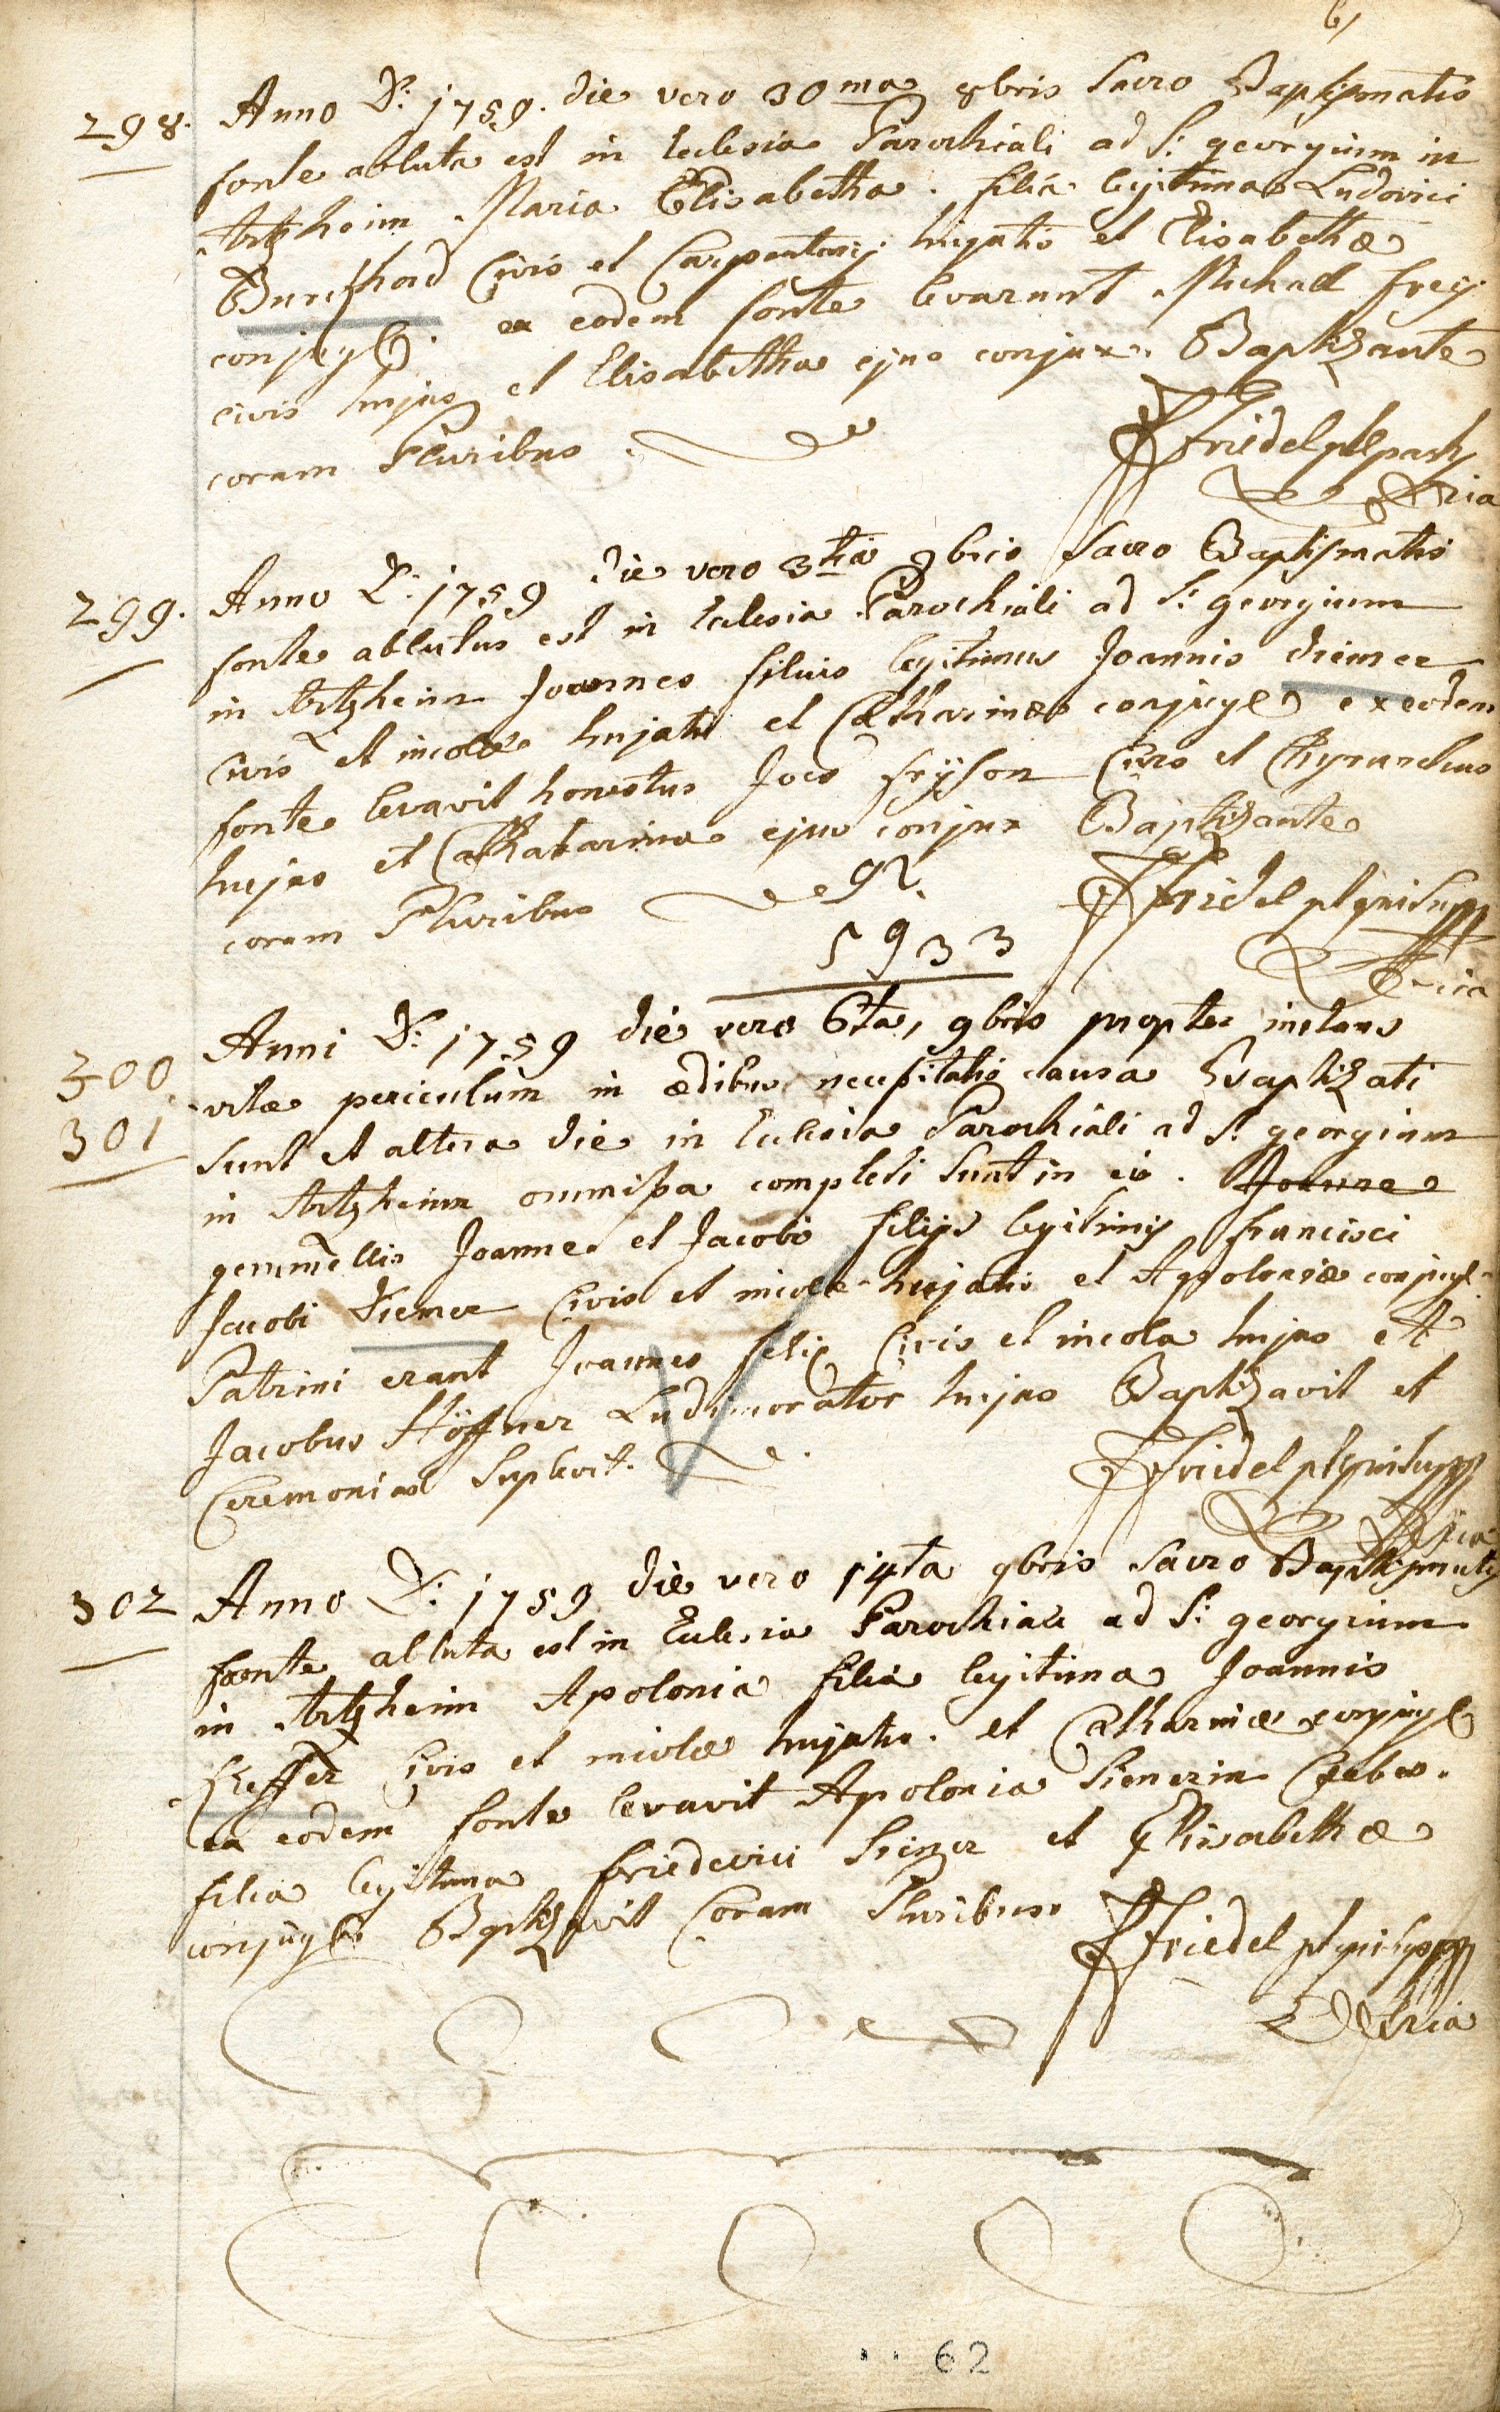 298. Anno D: 1759. die vero 30ma 8bris Sacro Baptismatis
fonte abluta est in Eclesia Parochiali ad S: georgium in
Artzheim Maria Elisabetha. filia legitima Ludovici
Burckhard Civis et Carpentarij hujatis et Elisabethæ
conjug: ex eodem fonte levarunt Michael frey
civis hujas et Elisabetha ejus conjux. Baptizante
coram Pluribus.
Friedel
299. Anno D: 1759 die vero 3tia 9bris Sacro Baptismatis
fonte ablutus est in Eclesia Parochiali ad S: georgium
in Artzheim Joannes filius legitimus Joannis diemer
Civis et incolæ hujatis et Catharinæ conjug ex eodem
fonte levavit honestus Joes Civis et Chyrurchus
hujas et Catharina ejus conjux Baptizante
coram Pluribus
Friedel
5933
300
301 Anni D: 1759 die vero 6ta, 9bris propter instans
vitæ periculum in ædibus necessitatis causa Baptizati
sunt et altera die in Eclesia Parochiali ad S: georgium
in Artzheim ommissa completi sunt in eis. Joanne
gemmellis Joanne et Jacobo filijs legitimis francisci
Jacobi Diemer Civis et incolæ hujatis et Apoloniæ conjug
Patrini erant Joannes felix Civis et incola hujas et
Jacobus Höffner Ludimorator hujas Baptizavit et
Ceremonias Suplevit.
Friedel
302 Anno D: 1759 die vero 14ta 9bris Sacro Baptismatis
foente abluta est in Eclesia Parochiali ad S: georgium
in Artzheim Apolonia filia legitima Joannis
Keffer Civis et incolæ hujatis. et Catharinæ conjug
ex eodem fonte levavit Apolonia Cælebs.
filia legitima friederici et Elisabethæ
conjug Bptizavit Coram Pluribus
Friedel
62